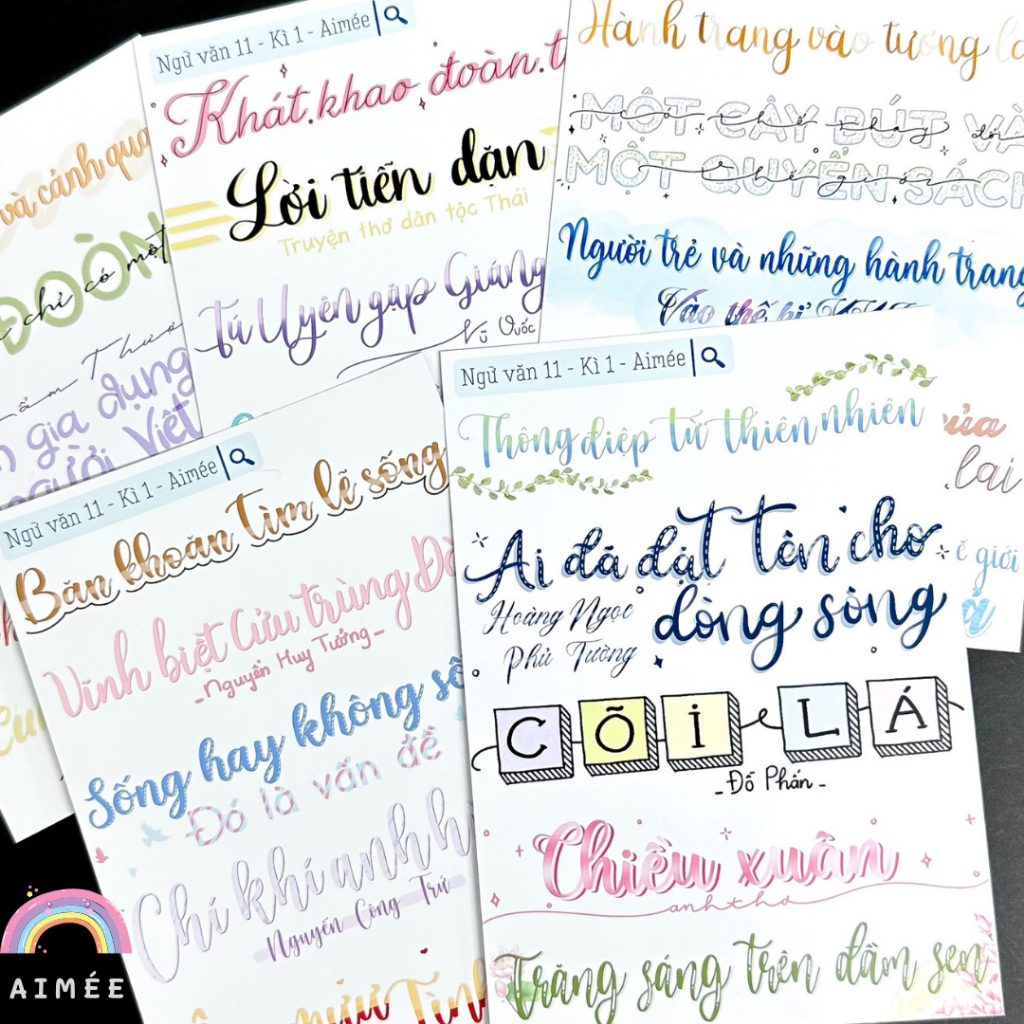 và cảnh qua
ĐÒN
chỉ có một
gia dụng
người Việt
Ngữ văn 11 - Kì 1 - Aimée
Khát khao đoàn t
Lời tiễn dặn
Truyện thơ dân tộc Thái
Tú Uyên gặp Giáng
Vũ Quốc
Hành trang vào tương la
MỘT CÂY BÚT VÀ
có thể thay đổi
MỘT QUYỂN SÁCH
thế giới
Người trẻ và những hành trang
Vào thế kỉ XXI
Ngữ văn 11 - Kì 1 - Aimée
Băn khoăn tìm lẽ sống
Vĩnh biệt Cửu trùng Đà
- Nguyễn Huy Tưởng -
Sống hay không số
Đó là vấn đề
Chí khí anh h
Nguyễn Công Trứ
Ngữ văn 11 - Kì 1 - Aimée
Thông điệp từ thiên nhiên
Ai đã đặt tên cho
dòng sông
Hoàng Ngọc
Phủ Tường
CÕI LÁ
- Đỗ Phấn -
Chiều xuân
anh thơ
Trăng sáng trên đầm sen
ủa
lai
ế giới
AIMÉE